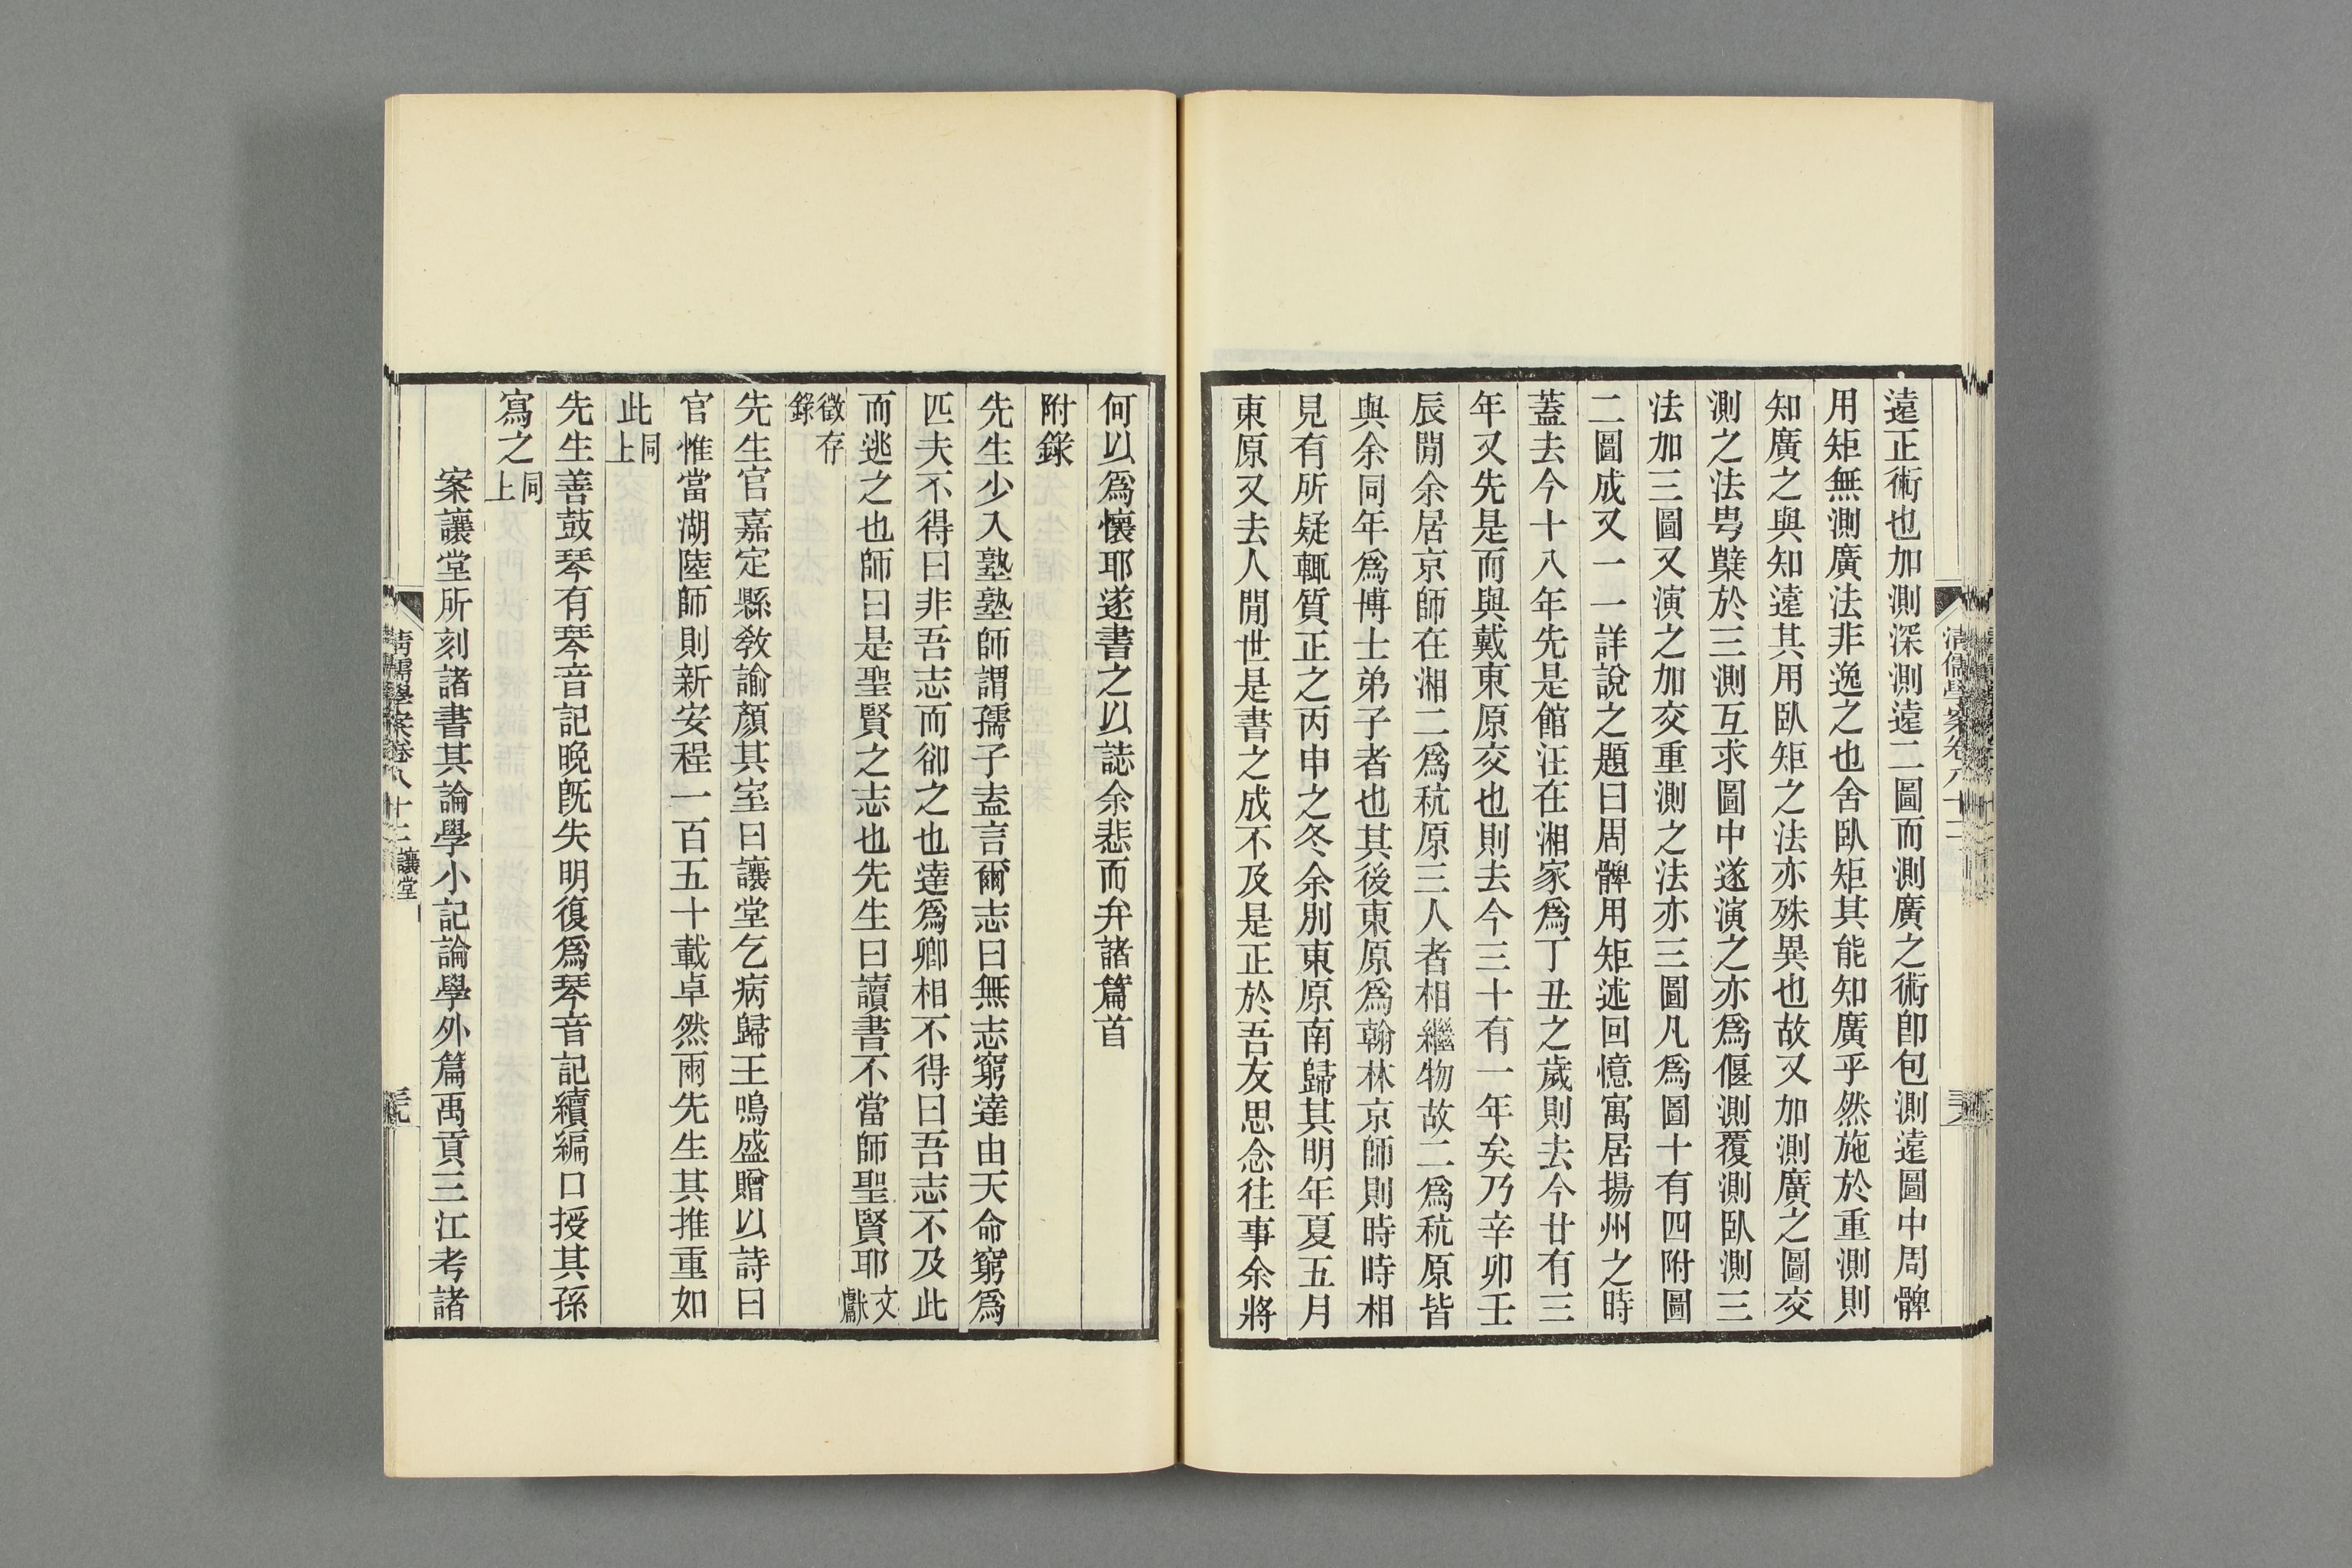 遠正術也加測深測遠二圖而測廣之術卽包測遠圖中周髀
用矩無測廣法非逸之也舍臥矩其能知廣乎然施於重測則
知廣之與知遠其用臥矩之法亦殊異也故又加測廣之圖交
測之法甼櫱於三測互求圖中遂演之亦爲偃測覆測臥測三
法加三圖又演之加交重測之法亦三圖凡爲圖十有四附圖
二圖成又一一詳說之題曰周髀用矩述回憶寓居揚州之時
蓋去今十八年先是館汪在湘家爲丁丑之歲則去今廿有三
年又先是而與戴東原交也則去今三十有一年矣乃辛卯壬
辰閒余居京師在湘二爲秔原三人者相繼物故二爲秔原皆
與余同年爲博士弟子者也其後東原爲翰林京師則時時相
見有所疑輒質正之丙申之冬余別東原南歸其明年夏五月
東原又去人閒世是書之成不及是正於吾友思念往事余將
清儒學案卷八十二
何以爲懷耶遂書之以誌余悲而弁諸篇首
附錄
先生少入塾塾師謂孺子盍言爾志曰無志窮達由天命窮爲
匹夫不得曰非吾志而卻之也達爲卿相不得曰吾志不及此
而逃之也師曰是聖賢之志也先生曰讀書不當師聖賢耶文獻
徵存錄
先生官嘉定縣敎諭顏其室曰讓堂乞病歸王鳴盛贈以詩曰
官惟當湖陸師則新安程一百五十載卓然兩先生其推重如
此同上
先生善鼓琴有琴音記晚旣失明復爲琴音記續編口授其孫
寫之同上
案讓堂所刻諸書其論學小記論學外篇禹貢三江考諸
清儒學案卷八十二 讓堂